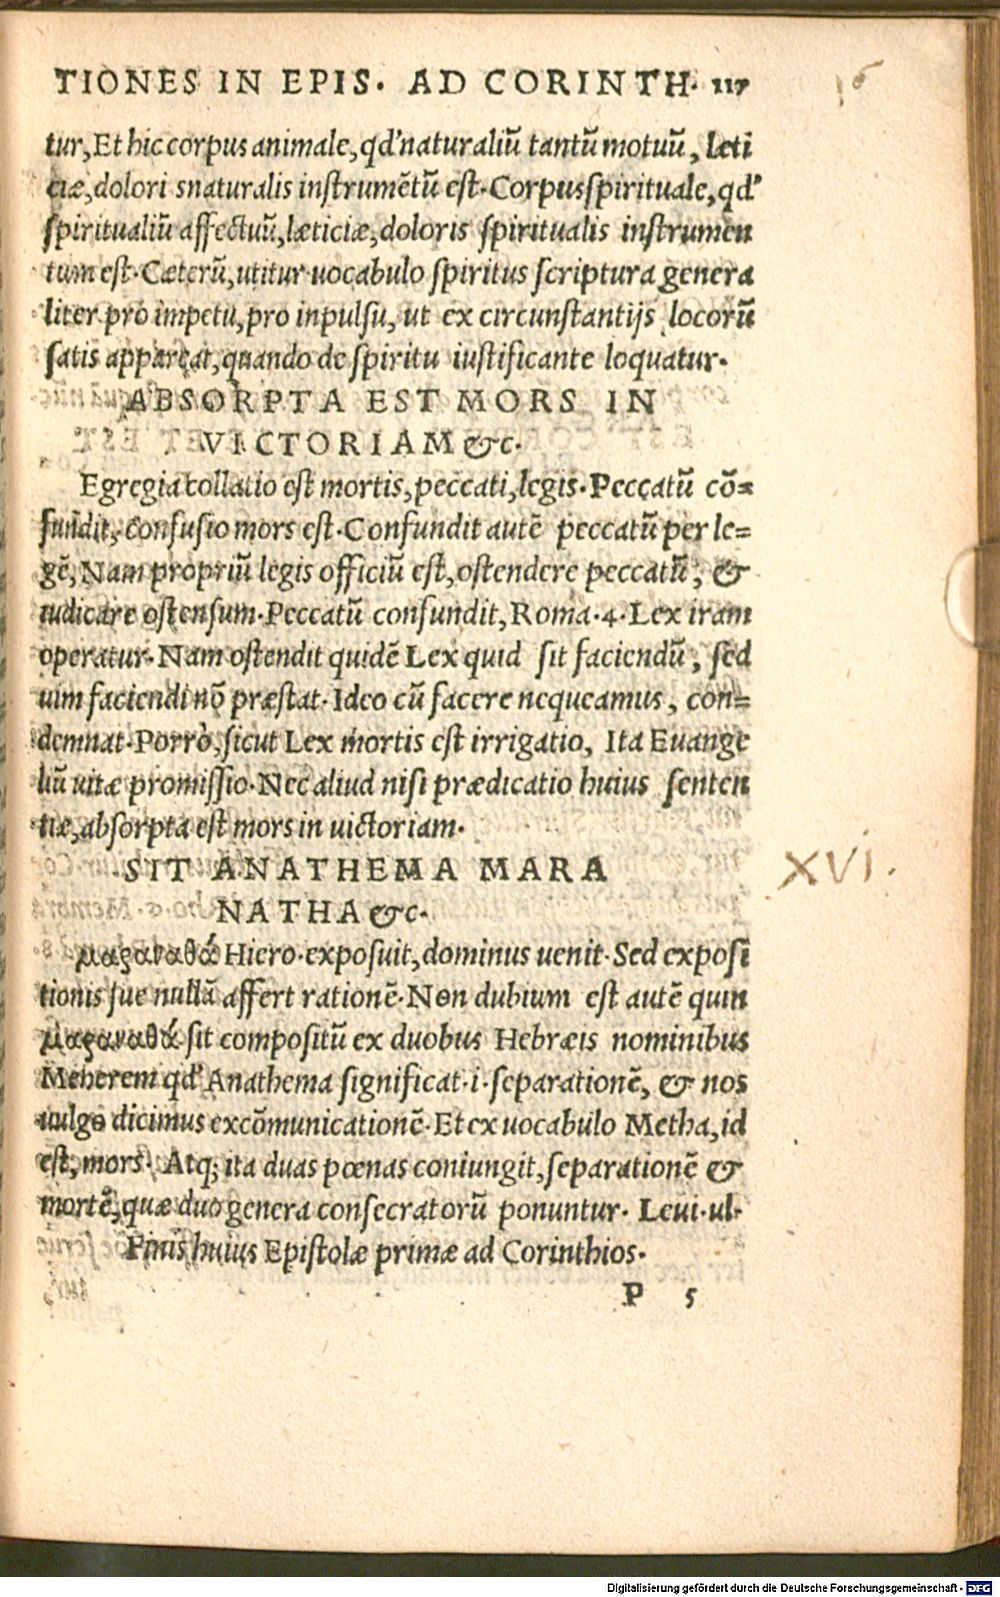 TIONES IN EPIS. AD CORINTH. 117
16
tur, Et hic corpus animale, qd' naturaliũ tantũ motuũ, leti
ciæ, dolori snaturalis instrumẽtũ est. Corpus spirituale, qd'
spiritualiũ affectuũ, læticiæ, doloris spiritualis instrumen
tum est. Cæterũ, utitur uocabulo spiritus scriptura genera
liter pro impetu, pro inpulsu, ut ex circunstantijs locorũ
satis appareat, quando de spiritu iustificante loquatur.
ABSORPTA EST MORS IN
VICTORIAM &c.
Egregia collatio est mortis, peccati, legis. Peccatũ cõ=
fundit, confusio mors est. Confundit autẽ peccatũ per le=
gẽ, Nam propriũ legis officiũ est, ostendere peccatũ, &
iudicare ostensum. Peccatũ confundit, Roma. 4. Lex iram
operatur. Nam ostendit quidẽ Lex quid sit faciendũ, sed
uim faciendi nõ præstat. Ideo cũ facere nequeamus, con=
demnat. Porrò, sicut Lex mortis est irrigatio, Ita Euange
liũ uitæ promissio. Nec aliud nisi prædicatio huius senten
tiæ, absorpta est mors in uictoriam.
SIT ANATHEMA MARA
NATHA &c.
XVI.
μαραναθά Hiero. exposuit, dominus uenit. Sed exposi
tionis sue nullã affert rationẽ. Non dubium est autẽ quin
μαραναθά sit compositũ ex duobus Hebræis nominibus
Meherem qd' Anathema significat. i. separationẽ, & nos
uulgo dicimus excõmunicationẽ. Et ex uocabulo Metha, id
est, mors. Atq; ita duas pœnas coniungit, separationẽ &
mortẽ, quæ duo genera consecratorũ ponuntur. Leui. ul.
Finis huius Epistolæ primæ ad Corinthios.
P 5
Digitalisierung gefördert durch die Deutsche Forschungsgemeinschaft - DFG